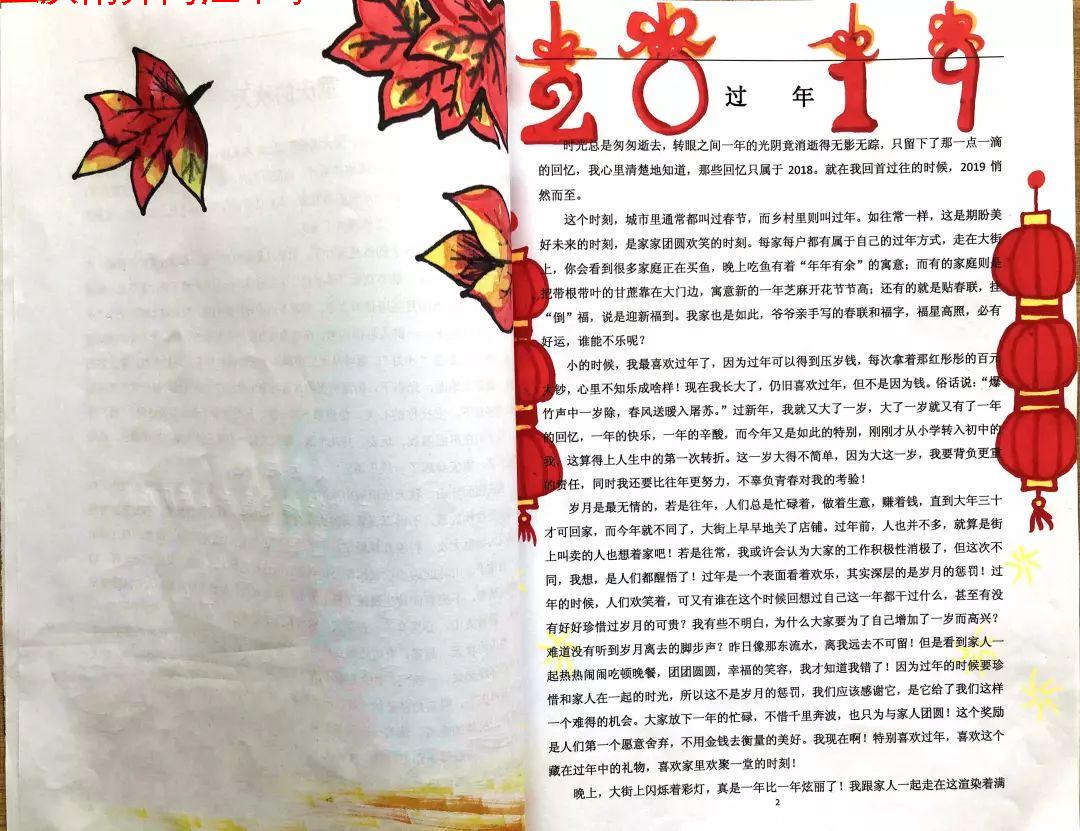 2019
过 年
时光总是匆匆逝去，转眼之间一年的光阴竟消逝得无影无踪，只留下了那一点一滴
的回忆，我心里清楚地知道，那些回忆只属于 2018。就在我回首过往的时候，2019 悄
然而至。
这个时刻，城市里通常都叫过春节，而乡村里则叫过年。如往常一样，这是期盼美
好未来的时刻，是家家团圆欢笑的时刻。每家每户都有属于自己的过年方式，走在大街
上，你会看到很多家庭正在买鱼，晚上吃鱼有着“年年有余”的寓意；而有的家庭则是
把带根带叶的甘蔗靠在大门边，寓意新的一年芝麻开花节节高；还有的就是贴春联，挂
“倒”福，说是迎新福到。我家也是如此，爷爷亲手写的春联和福字，福星高照，必有
好运，谁能不乐呢？
小的时候，我最喜欢过年了，因为过年可以得到压岁钱，每次拿着那红彤彤的百元
大钞，心里不知乐成啥样！现在我长大了，仍旧喜欢过年，但不是因为钱。俗话说：“爆
竹声中一岁除，春风送暖入屠苏。”过新年，我就又大了一岁，大了一岁就又有了一年
的回忆，一年的快乐，一年的辛酸，而今年又是如此的特别，刚刚才从小学转入初中的
我，这算得上人生中的第一次转折。这一岁大得不简单，因为大这一岁，我要背负更重
的责任，同时我还要比往年更努力，不辜负青春对我的考验！
岁月是最无情的，若是往年，人们总是忙碌着，做着生意，赚着钱，直到大年三十
才可回家，而今年就不同了，大街上早早地关了店铺。过年前，人也并不多，就算是街
上叫卖的人也想着家吧！若是往常，我或许会认为大家的工作积极性消极了，但这次不
同，我想，是人们都醒悟了！过年是一个表面看着欢乐，其实深层的是岁月的惩罚！过
年的时候，人们欢笑着，可又有谁在这个时候回想过自己这一年都干过什么，甚至有没
有好好珍惜过岁月的可贵？我有些不明白，为什么大家要为了自己增加了一岁而高兴？
难道没有听到岁月离去的脚步声？昨日像那东流水，离我远去不可留！但是看到家人一
起热热闹闹吃顿晚餐，团团圆圆，幸福的笑容，我才知道我错了！因为过年的时候要珍
惜和家人在一起的时光，所以这不是岁月的惩罚，我们应该感谢它，是它给了我们这样
一个难得的机会。大家放下一年的忙碌，不惜千里奔波，也只为与家人团圆！这个奖励
是人们第一个愿意舍弃，不用金钱去衡量的美好。我现在啊！特别喜欢过年，喜欢这个
藏在过年中的礼物，喜欢家里欢聚一堂的时刻！
晚上，大街上闪烁着彩灯，真是一年比一年炫丽了！我跟家人一起走在这渲染着满
2